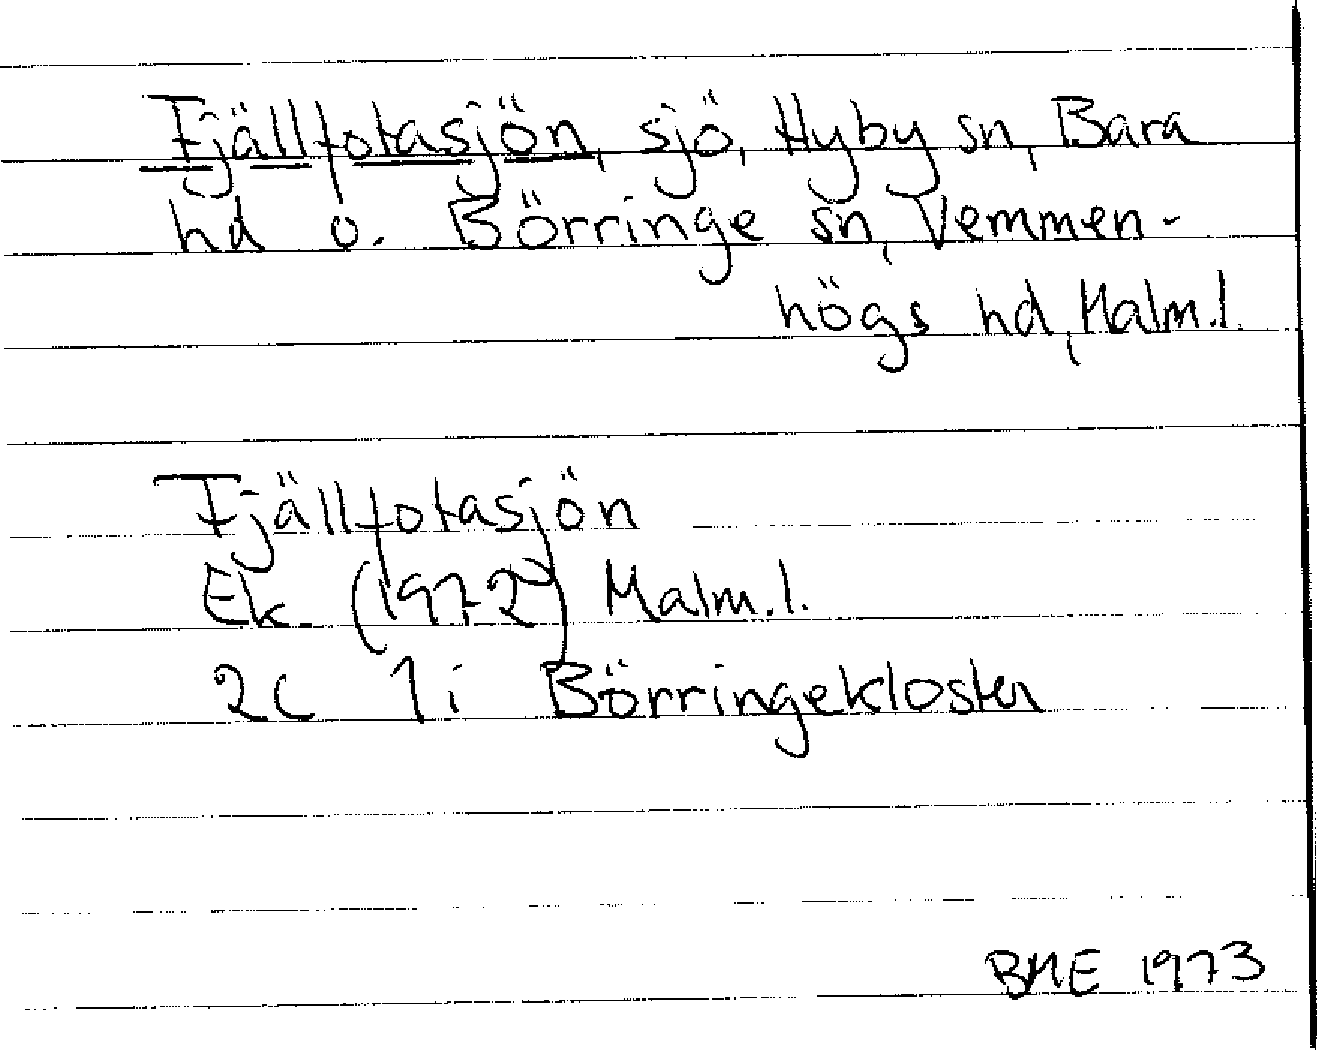 Fjällfotasjön, sjö, Hyby sn, Bara
hd o. Börringe sn, Vemmen-
högs hd, Malm.l.
Fjällfotasjön
Ek. (1972) Malm.l.
2C 1i Börringekloster
BME 1973